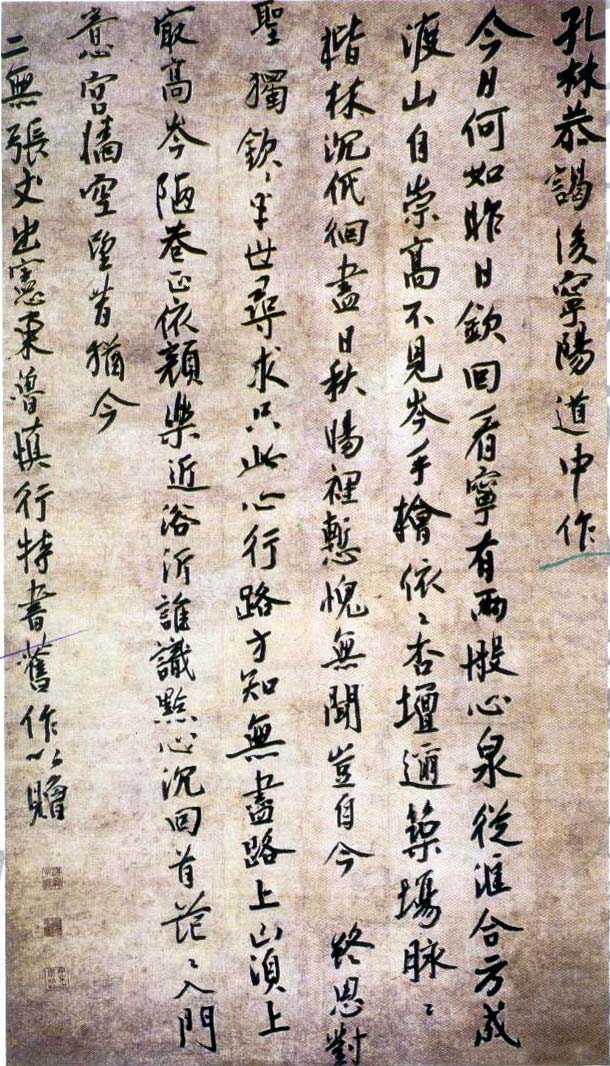 孔林恭謁後寧陽道中作
今日何如昨日欽回看寧有兩般心泉從滙合方成
渡山自崇高不見岑手檜依〻杏壇邇築場脉〻
楷林沉低徊盡日秋陽裡慙愧無聞豈自今 終思對
聖獨欽〻半世尋求只此心行路方知無盡路上山湏上
㝡高岑陋巷正依顏樂近浴沂誰識點心沉回首茫〻入門
意宮牆空望昔猶今
二無張丈出憲東魯慎行特書舊作以贈